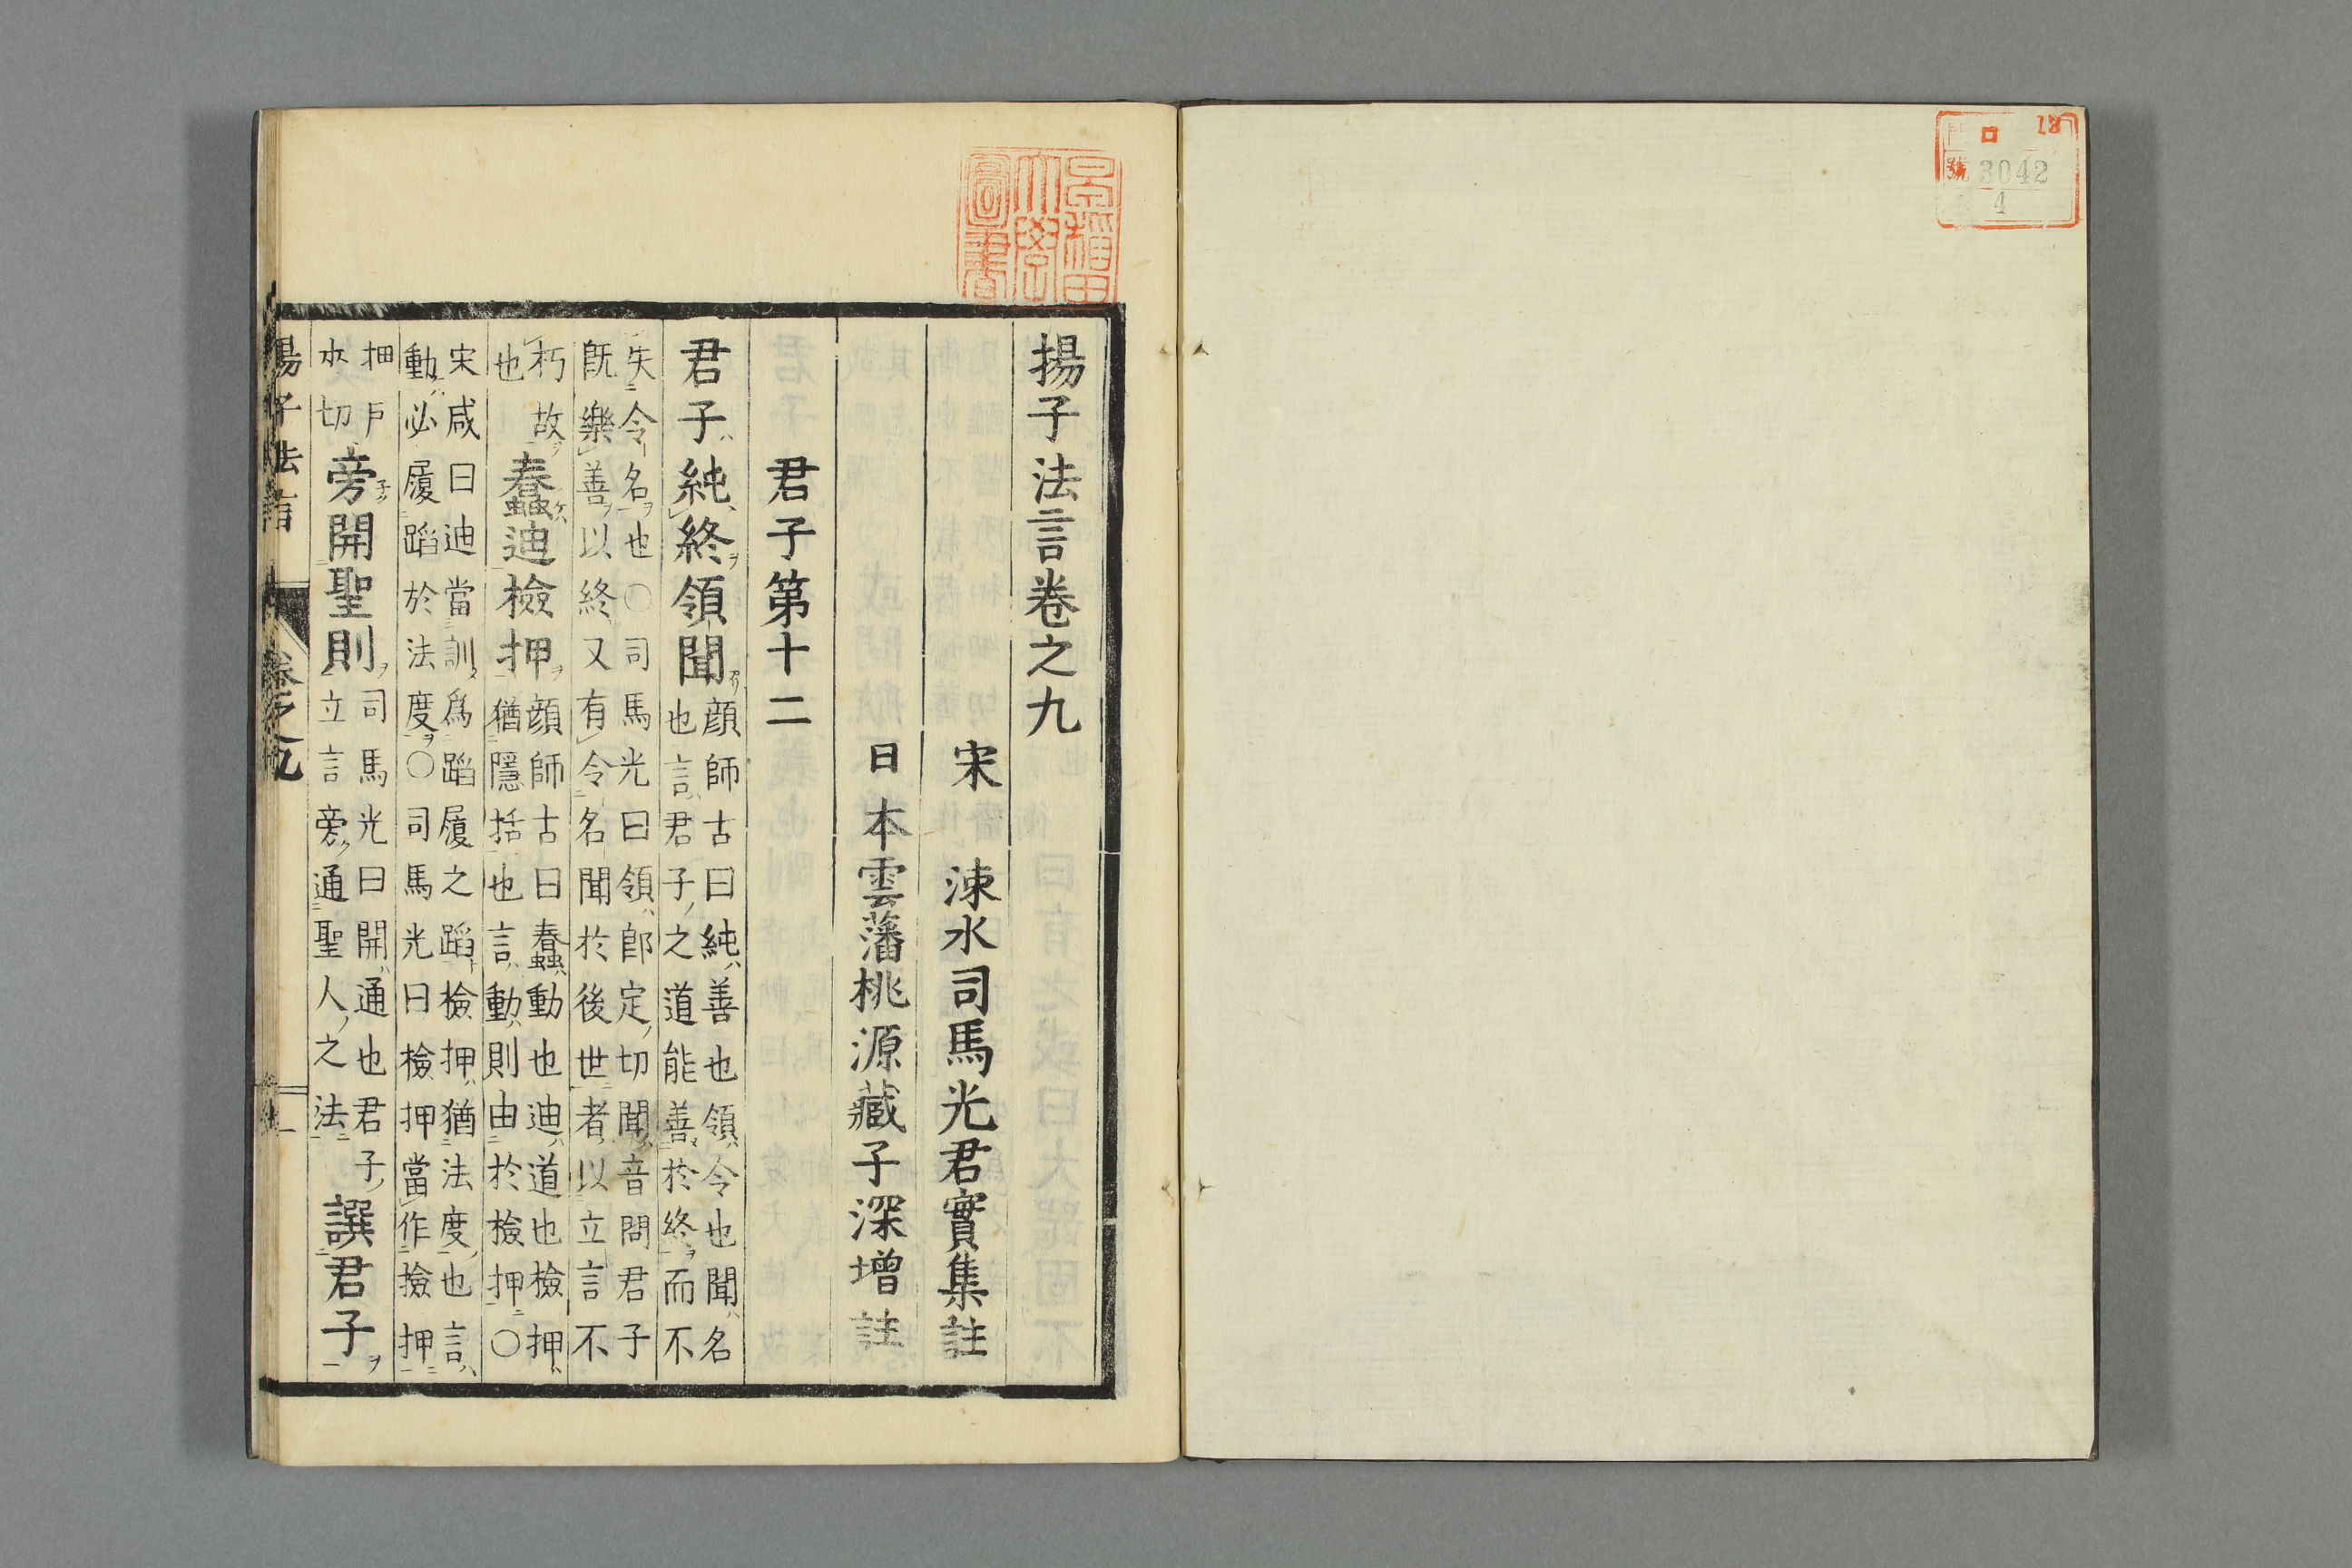 ロ 12
號 3042
4
早稲田
大學
圖書
揚子法言卷之九
宋 涑水司馬光君實集註
日本雲藩桃源藏子深增註
君子第十二
君子純終領聞 顔師古曰純善也領令也聞名
也言君子之道能善於終而不
失令名也○司馬光曰領郎定切聞音問君子
既樂善以終又有令名聞於後世者以立言不
朽故
也
蠢迪檢押 顔師古曰蠢動也迪道也檢押
猶隱括也言動則由於檢押○
宋咸曰迪當訓爲蹈履之蹈檢押猶法度也言
動必履蹈於法度○司馬光曰檢押當作撿押
押戶
夾切
旁開聖則 司馬光曰開通也君子
立言旁通聖人之法
譔君子
揚子法言 卷之九 一